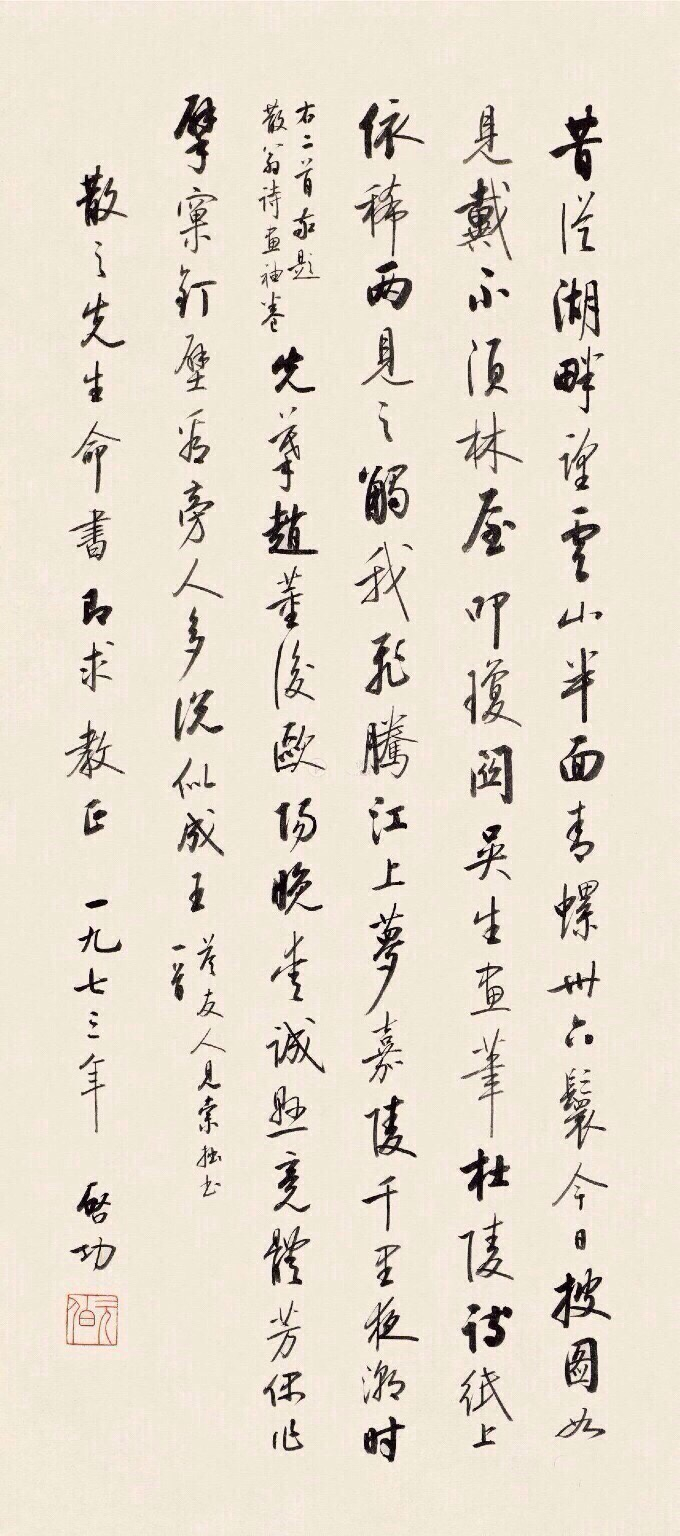 昔從湖畔望雲山半面青螺卅六鬟今日披圖如
見戴不須林屋叩瓊關吳生畫筆杜陵詩紙上
依稀两見之觸我飛騰江上夢嘉陵千里夜潮時
右二首敬題
散翁詩畫袖卷
先摹趙董後歐陽晚愛誠懸竟體芳偶作
擘窠釘壁看旁人多說似成王
答友人見索拙書
一首
散之先生命書即求教正 一九七三年 啓功
元白